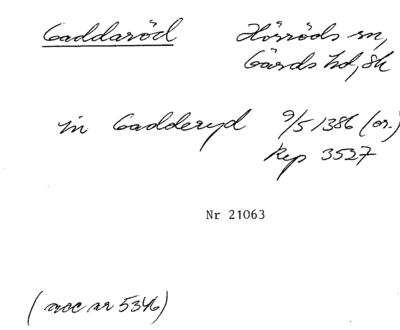 Gaddaröd Hörröds sn,
Gärds hd, Sk
in Gadderyd 9/5 1386 (or.)
Rep 3527
Nr 21063
(acc nr 5346)